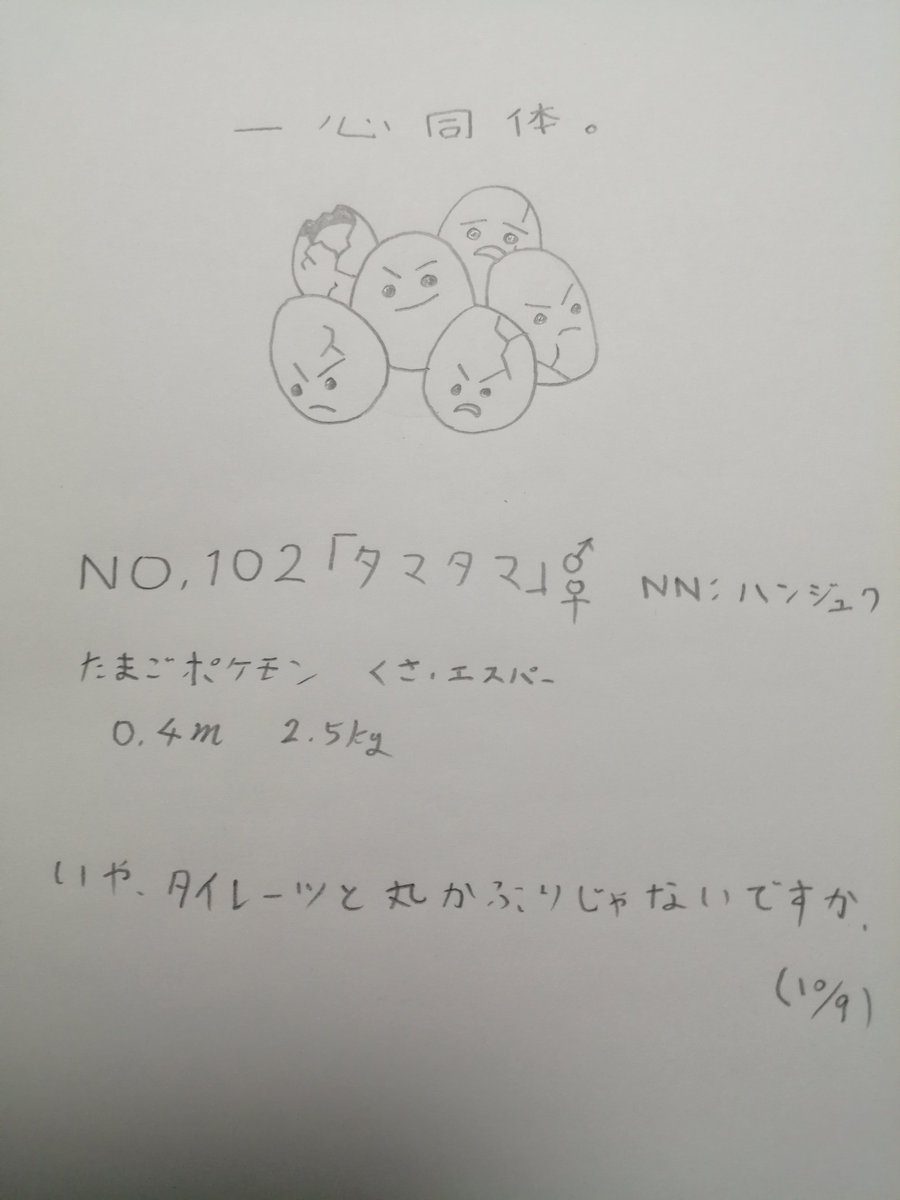 一心同体。
NO,102「タマタマ」♂♀ NN:ハンジュク
たまごポケモン くさ・エスパー
0.4m 2.5kg
いや、タイレーツと丸かぶりじゃないですか。
(10/9)